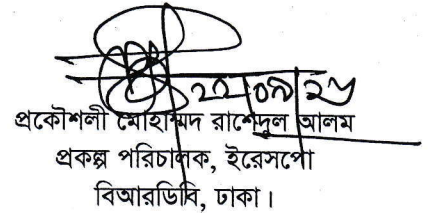 ২২/০৯/২৫
প্রকৌশলী মোহাম্মদ রাশেদুল আলম
প্রকল্প পরিচালক, ইরেসপো
বিআরডিবি, ঢাকা।